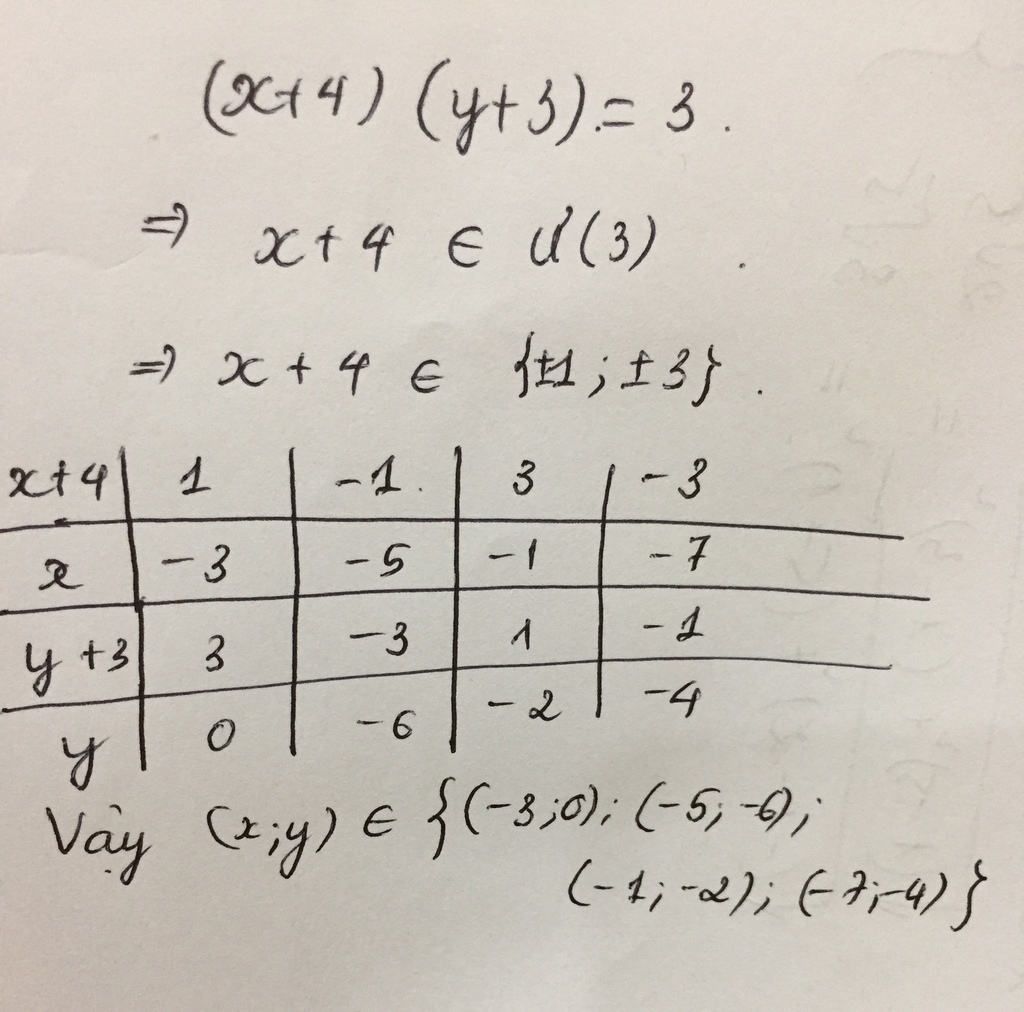 (x+4) (y+3) = 3.
⇒ x+4 ∈ Ư(3).
⇒ x + 4 ∈ {±1 ; ±3}.
x+4 | 1 | -1. | 3 | -3
x | -3 | -5 | -1 | -7
y +3 | 3 | -3 | 1 | -1
y | 0 | -6 | -2 | -4
Vậy (x;y) ∈ {(-3;0); (-5; -6);
(-1; -2); (-7;-4)}